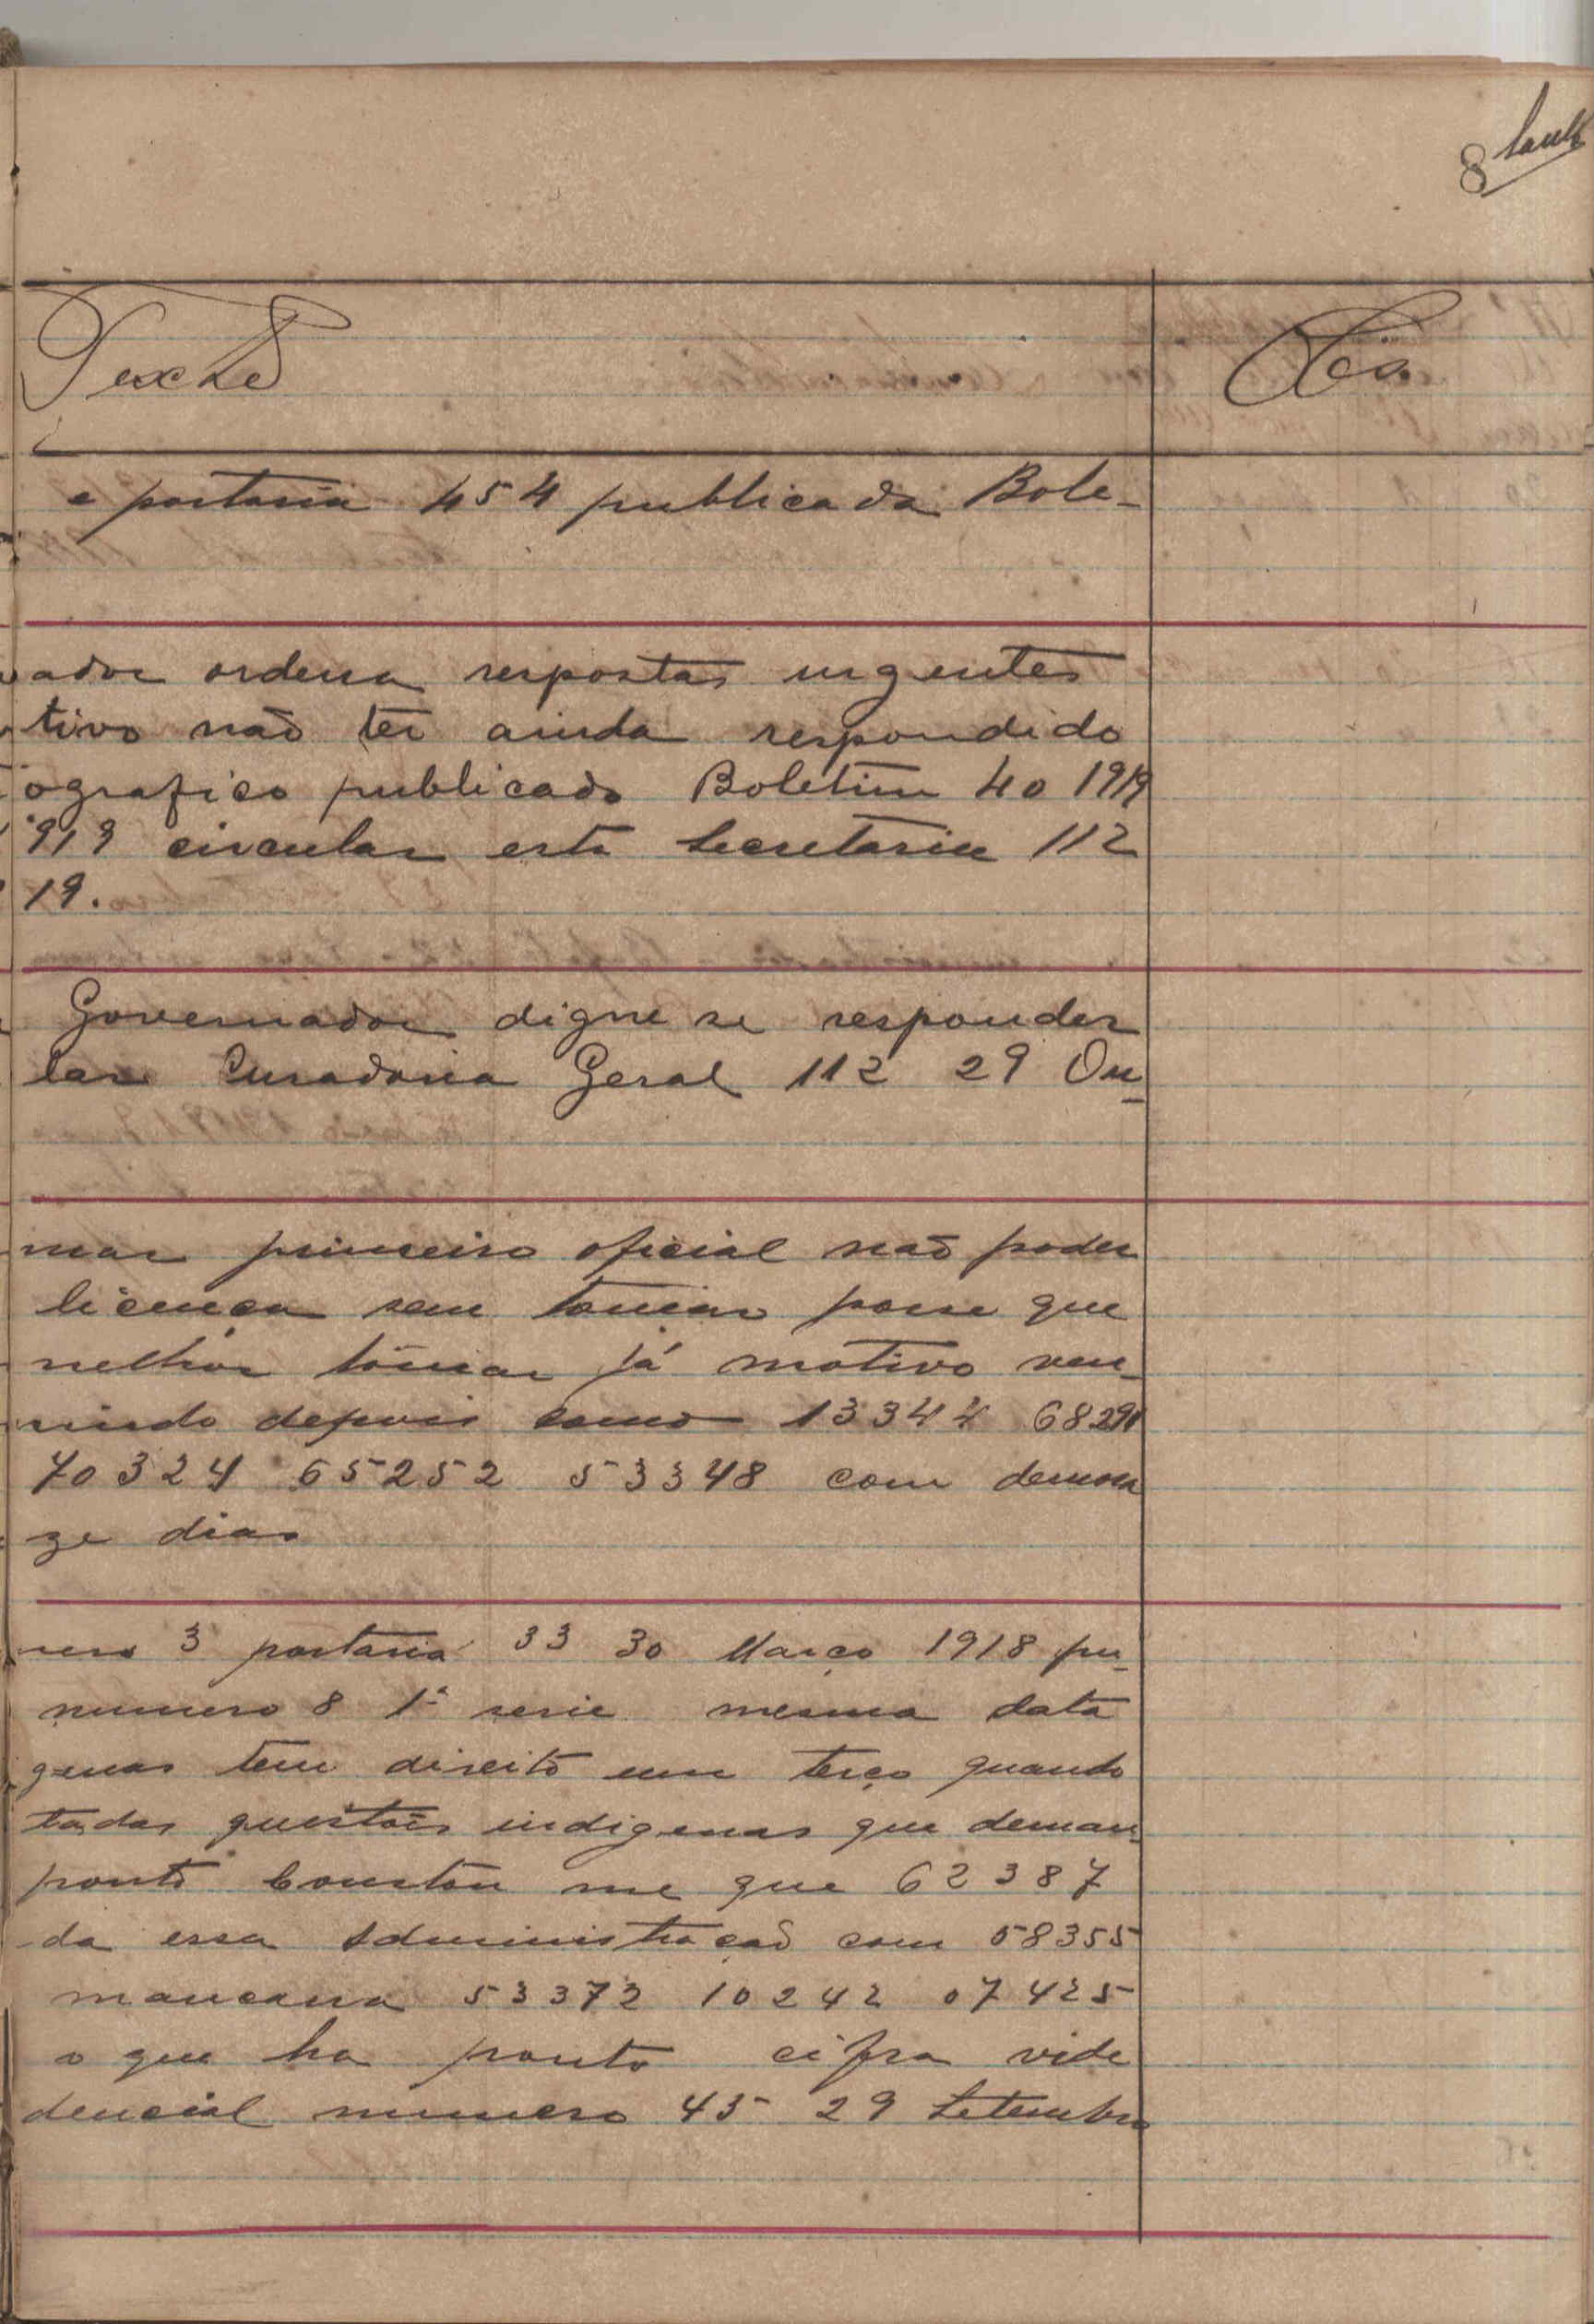 8
Texto
e portaria 454 publicada Bole-
ador ordena respostas urgentes
tivo não ter ainda respondido
ografico publicado Boletim 40 1919
919 circular esta Secretaria 112
19.
Governador digne se responder
lar Curadoria Geral 112 29 Ou-
mar primeiro oficial não poder
licença sem tomar posse que
melhor tomar já motivo ven-
depois como 13344 68291
70324 65252 53348 com demora
ze dias
mero 3 portaria 33 30 Março 1918 pu-
numero 8 1ª serie mesma data
genas tem direito um terço quando
tadas questões indigenas que deman-
ponto Constou me que 62387
da essa Administração com 58355
mancana 53372 10242 07425
o que ha ponto cifra vide
dencial numero 45 29 Setembro